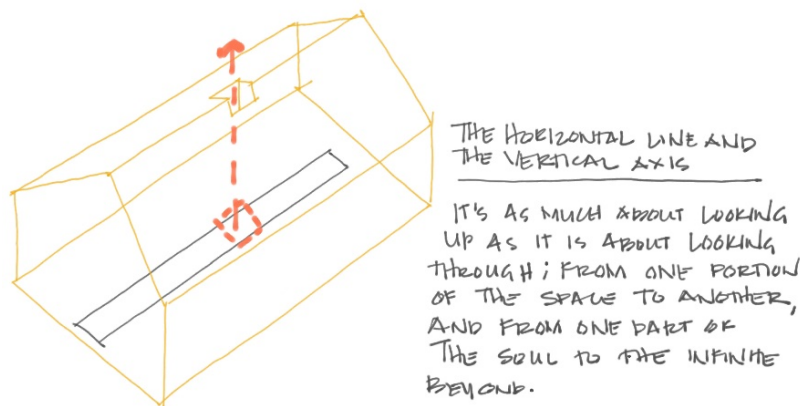 THE HORIZONTAL LINE AND
THE VERTICAL AXIS
IT'S AS MUCH ABOUT LOOKING
UP AS IT IS ABOUT LOOKING
THROUGH; FROM ONE PORTION
OF THE SPACE TO ANOTHER,
AND FROM ONE PART OF
THE SOUL TO THE INFINITE
BEYOND.